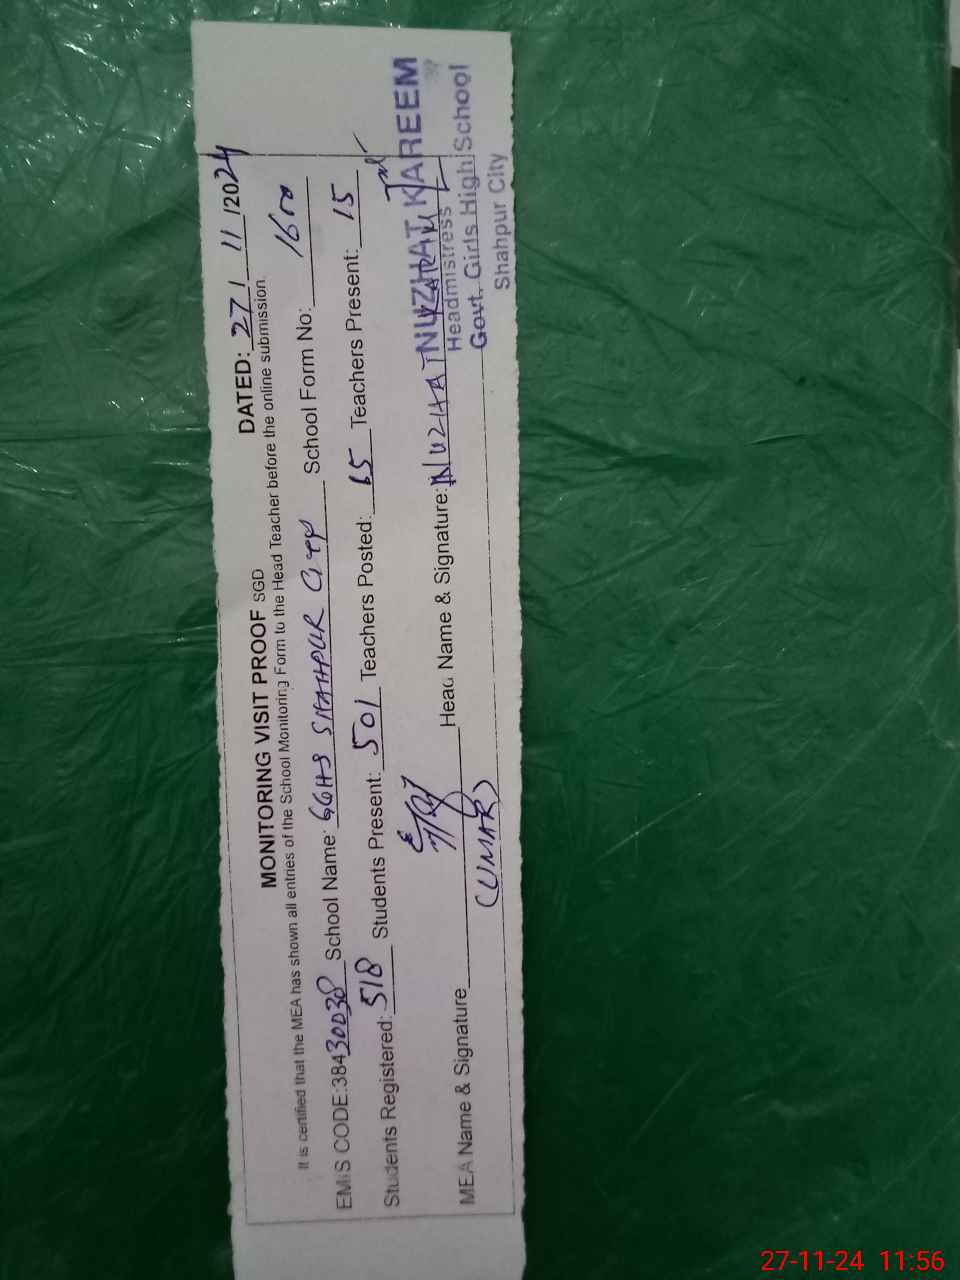 MONITORING VISIT PROOF SGD DATED: 27/11/2024
It is certified that the MEA has shown all entries of the School Monitoring Form to the Head Teacher before the online submission.
EMIS CODE:38430038 School Name: GGHS SHAHPUR City School Form No: 1600
Students Registered: 518 Students Present: 501 Teachers Posted: 15 Teachers Present: 15
MEA Name & Signature (UMAR) Head Name & Signature: NUZHAT KARIM
NUZHAT KAREEM
Headmistress
Govt. Girls High School
Shahpur City
27-11-24 11:56